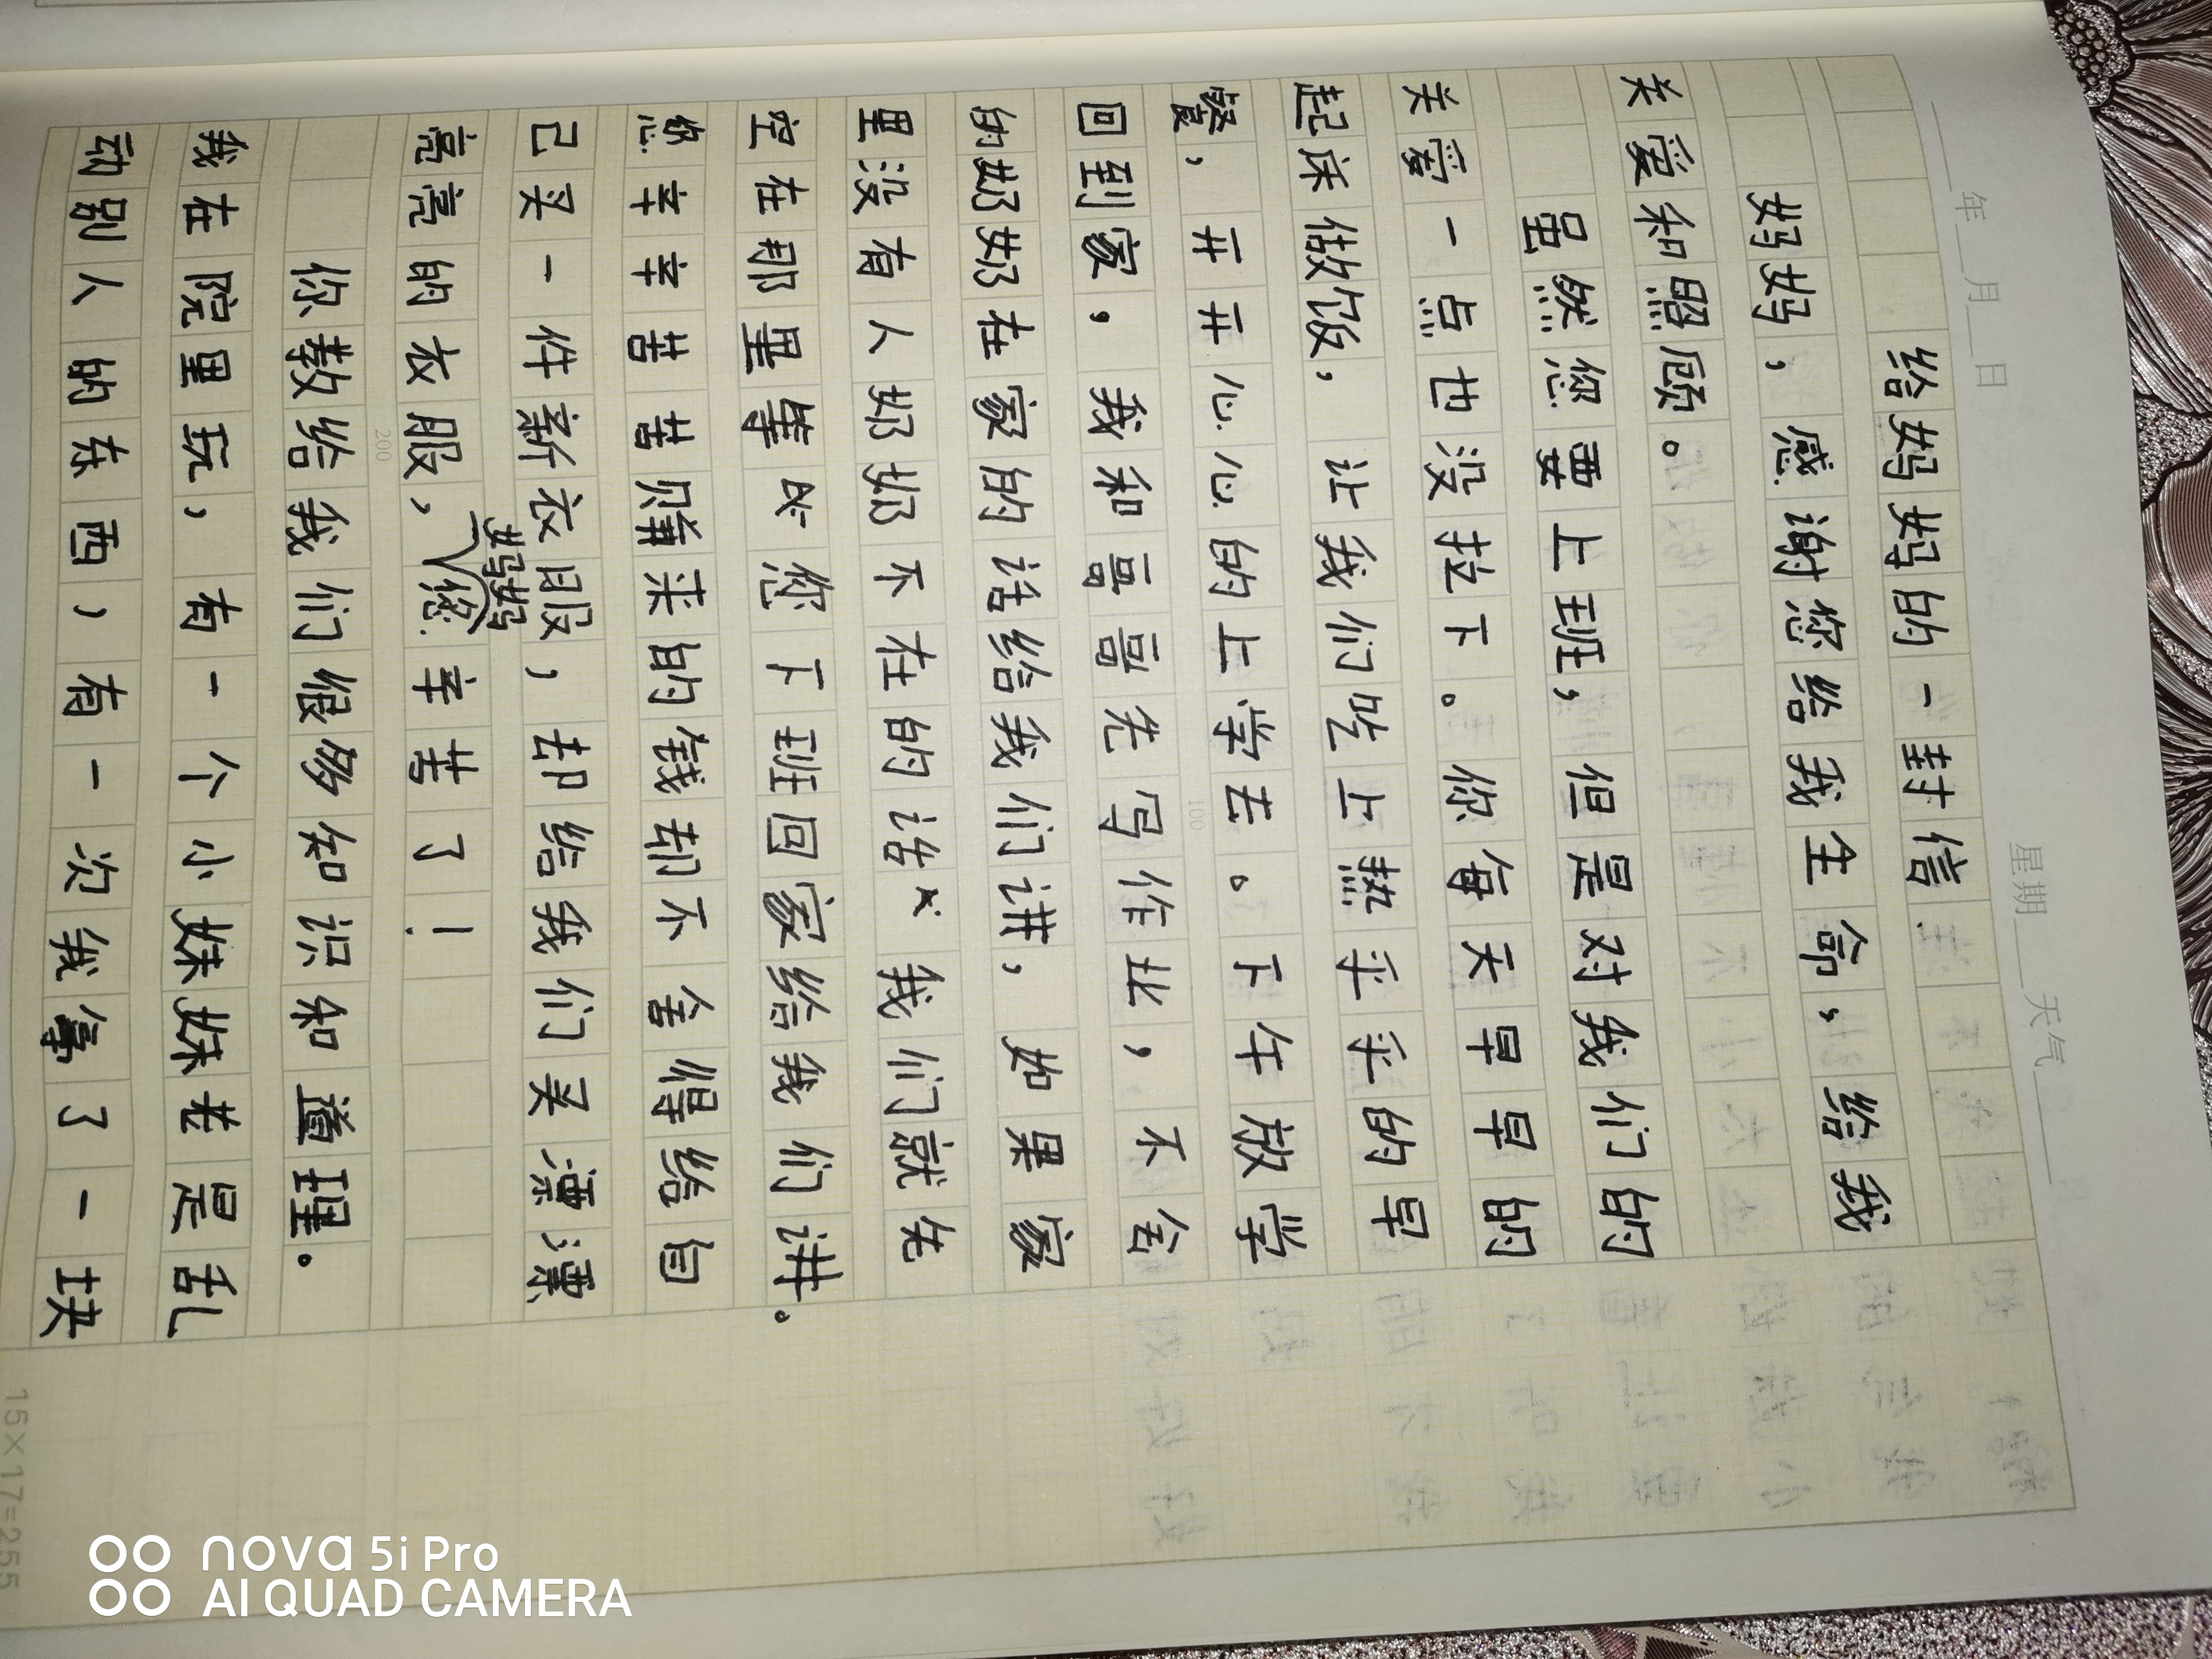 ____年__月__日 星期____天气____
给妈妈的一封信
妈妈，感谢您给我生命，给我
关爱和照顾。
虽然您要上班，但是对我们的
关爱一点也没拉下。你每天早早的
起床做饭，让我们吃上热乎乎的早
餐，开开心心的上学去。下午放学
回到家，我和哥哥先写作业，不会
的奶奶在家的话给我们讲，如果家
里没有人奶奶不在的话 我们就先
空在那里等 您下班回家给我们讲。
您辛辛苦苦赚来的钱却不舍得给自
己买一件新衣服，却给我们买漂漂
亮亮的衣服，妈妈您辛苦了！
你教给我们很多知识和道理。
200
我在院里玩，有一个小妹妹老是乱
动别人的东西，有一次我拿了一块
100
15×17=255
nova 5i Pro
AI QUAD CAMERA